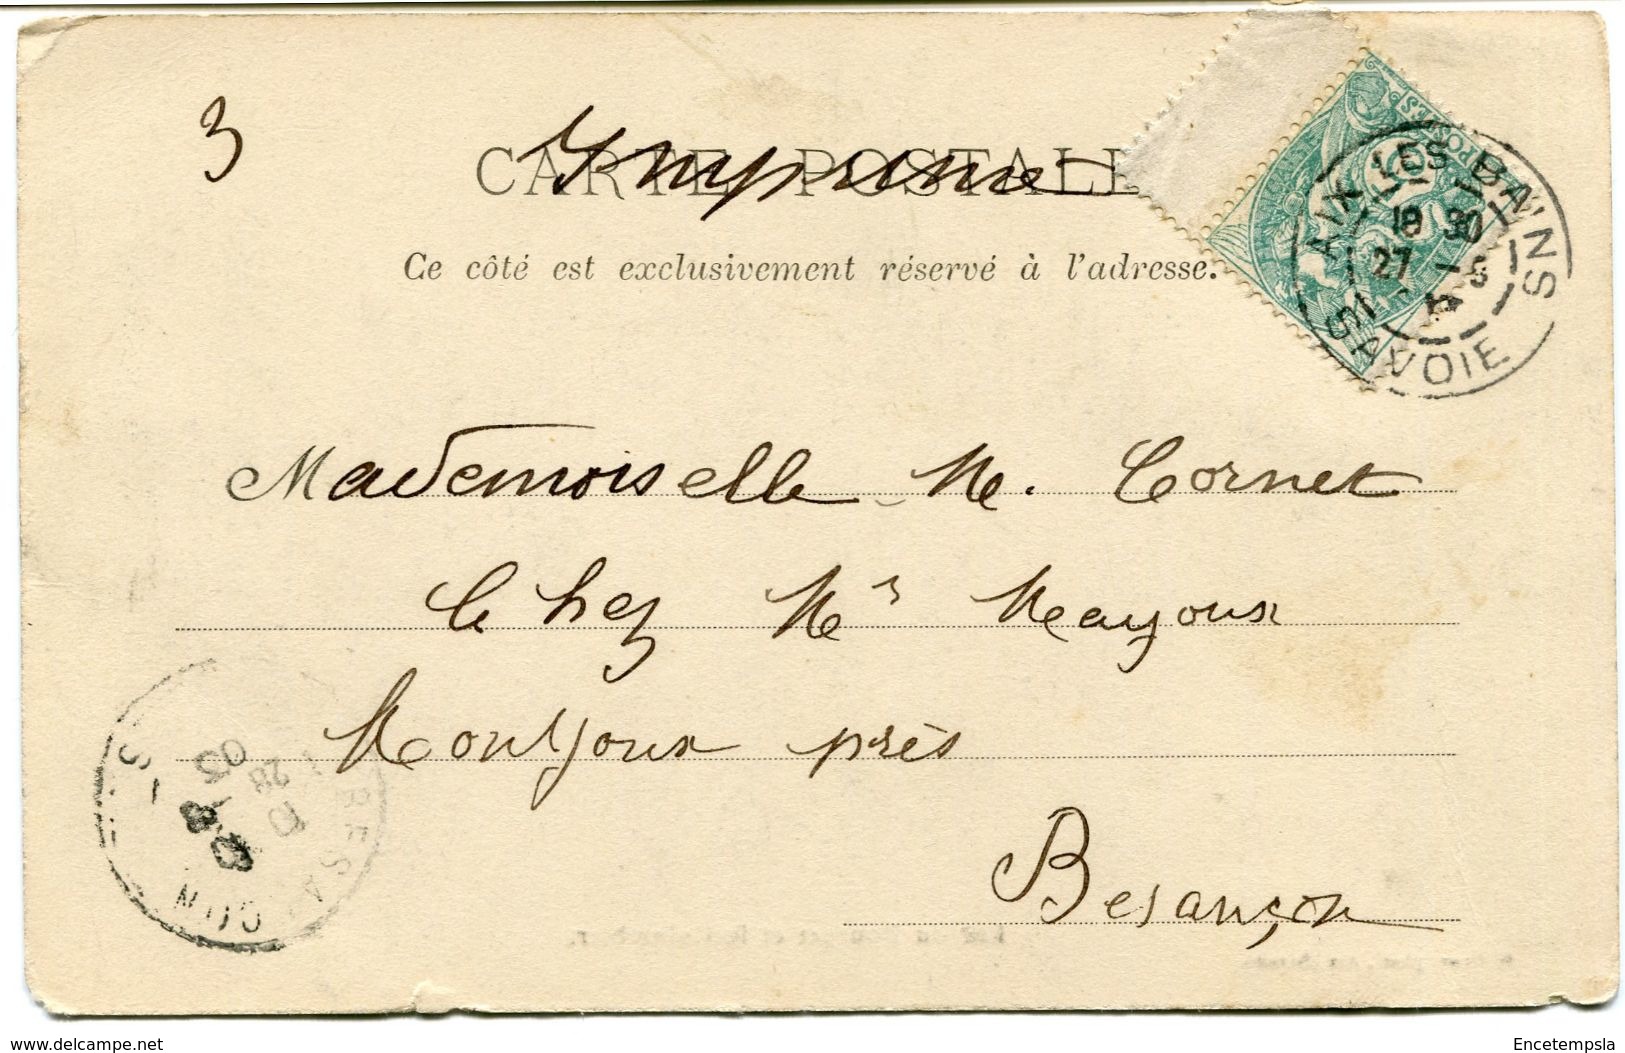 3
CARTE POSTALE
Imprimé
Ce côté est exclusivement réservé à l'adresse.
POSTES
5
AIX LES BAINS
18 30
27
SAVOIE
Mademoiselle M. Cornet
Chez Mr Mayoux
Montjoux près
Besançon
28
03
www.delcampe.net
Encetempsla